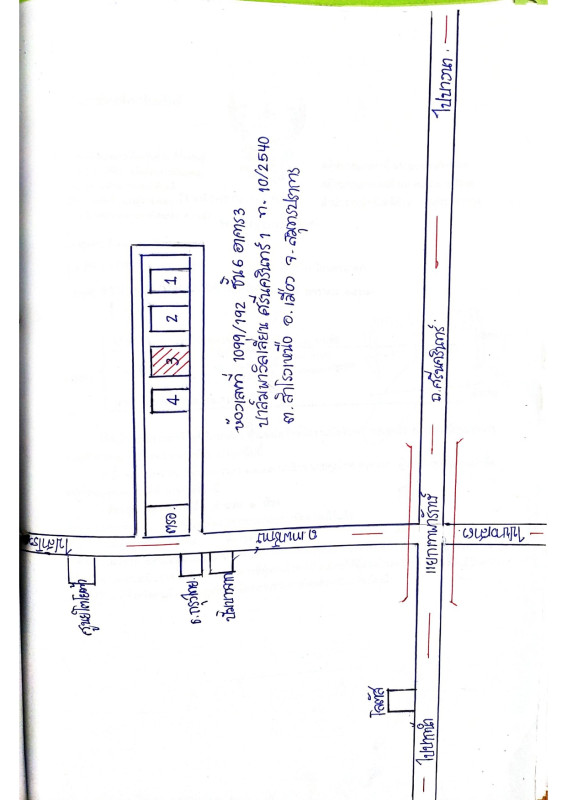 ห้องเลขที่ 1099/192 ชั้น 6 อาคาร 3
ปาล์มพาวิลเลี่ยน ศรีนครินทร์ 1 ท. 10/2540
ต. สำโรงเหนือ อ. เมือง จ. สมุทรปราการ
1
2
3
4
ตรอ.
ไปสำโรง
ถ.เทพารักษ์
ศูนย์โตโยต้า
ธ.กรุงไทย
ปั๊มบางจาก
แยกเทพารักษ์
ไปบางพลี
ถ.ศรีนครินทร์
ไปบางนา
โลตัส
ไปปากน้ำ